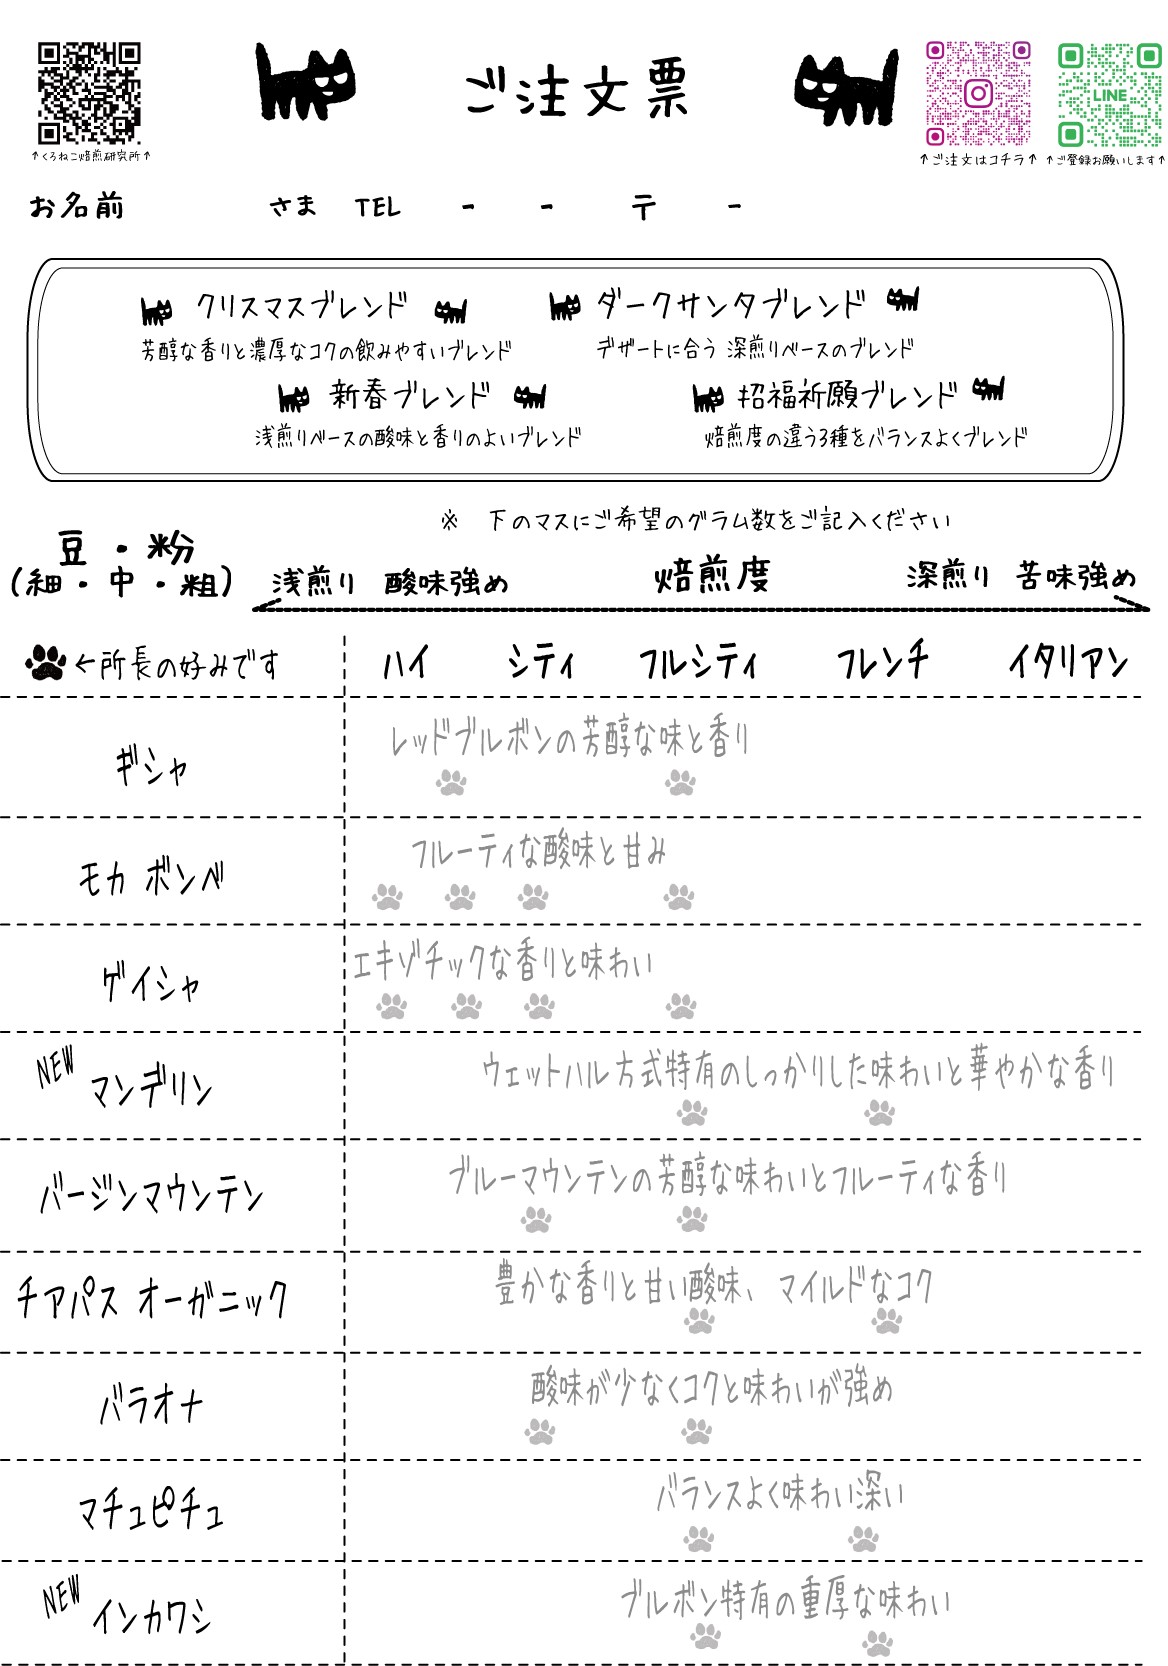 ご注文票
LINE
↑くろねこ焙煎研究所↑
↑ご注文はコチラ↑
↑ご登録お願いします↑
お名前 さま TEL - - 〒 -
クリスマスブレンド
ダークサンタブレンド
芳醇な香りと濃厚なコクの飲みやすいブレンド
デザートに合う 深煎りベースのブレンド
新春ブレンド
招福祈願ブレンド
浅煎りベースの酸味と香りのよいブレンド
焙煎度の違う3種をバランスよくブレンド
※ 下のマスにご希望のグラム数をご記入ください
豆・粉
(細・中・粗)
浅煎り 酸味強め 焙煎度 深煎り 苦味強め
←所長の好みです
ハイ シティ フルシティ フレンチ イタリアン
ギシャ
レッドブルボンの芳醇な味と香り
モカ ボンベ
フルーティな酸味と甘み
ゲイシャ
エキゾチックな香りと味わい
NEW
マンデリン
ウェットハル方式特有のしっかりした味わいと華やかな香り
バージンマウンテン
ブルーマウンテンの芳醇な味わいとフルーティな香り
チアパス オーガニック
豊かな香りと甘い酸味、マイルドなコク
バラオナ
酸味が少なくコクと味わいが強め
マチュピチュ
バランスよく味わい深い
NEW
インカワシ
ブルボン特有の重厚な味わい